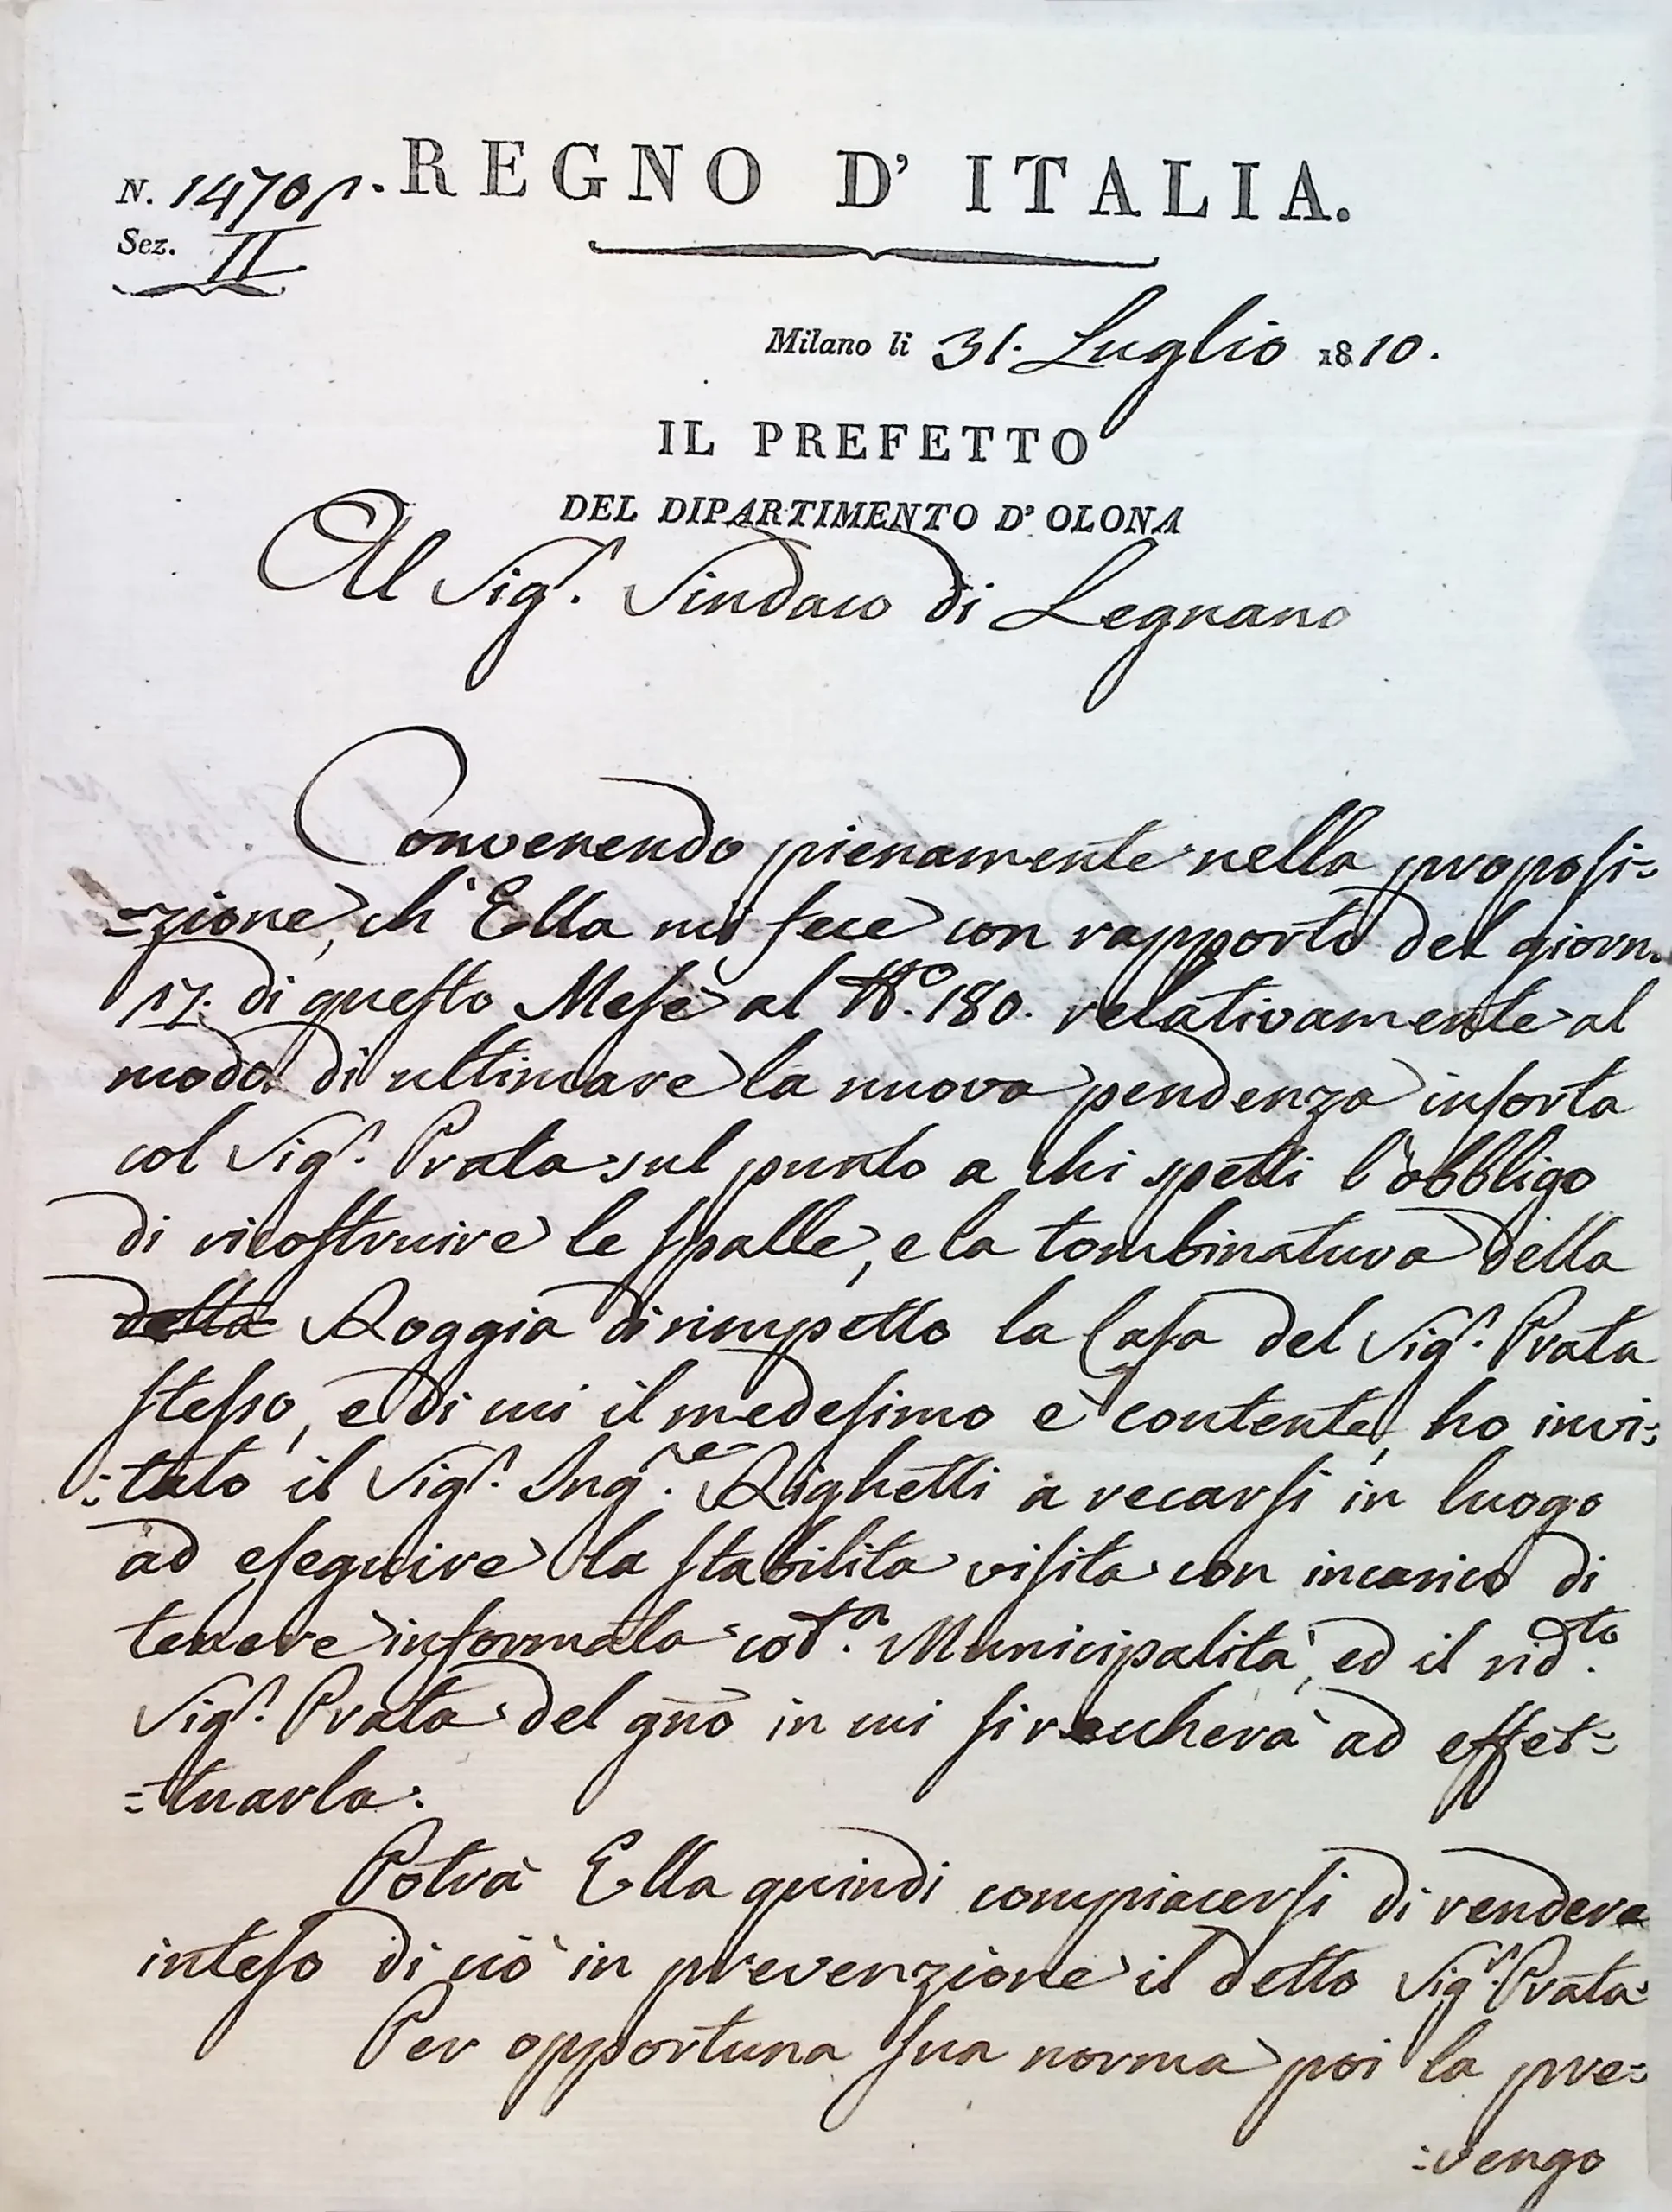 REGNO D' ITALIA.
N. 14701.
Sez. II
Milano li 31. Luglio 1810.
IL PREFETTO
DEL DIPARTIMENTO D' OLONA
Al Sigr. Sindaco di Legnano
Convenendo pienamente nella proposi=
=zione, ch' Ella mi fece con rapporto del giorn.
17. di questo Mese al No. 180. relativamente al
modo di ultimare la nuova pendenza insorta
col Sigr. Prata sul punto a chi spetti l'obbligo
di ricostruire le spalle, e la tombinatura della
della Roggia dirimpetto la Casa del Sigr. Prata
stesso, e di cui il medesimo è contente, ho invi=
=tato il Sigr. Ingre. Righetti a recarsi in luogo
ad eseguire la stabilita visita con incarico di
tenere informata codª. Municipalità, ed il ridto.
Sigr. Prata del gno in cui si recherà ad effet=
=tuarla.
Potrà Ella quindi compiacersi di rendere
inteso di ciò in prevenzione il detto Sigr. Prata.
Per opportuna sua norma poi la pre=
=vengo